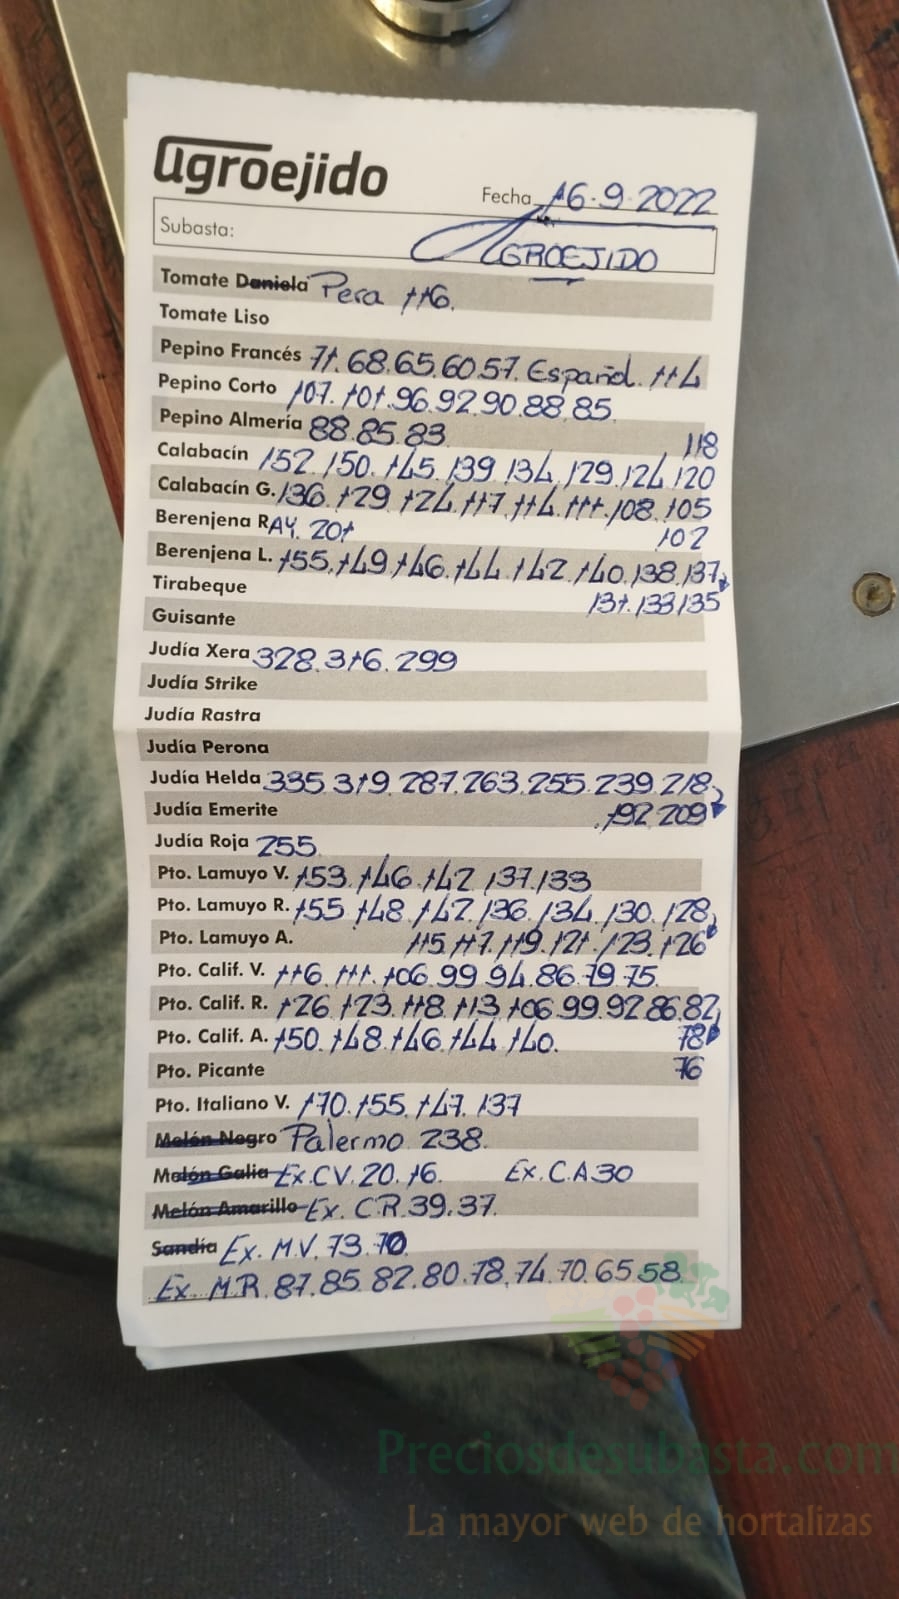 agroejido
Fecha 16-9-2022
Subasta: AGROEJIDO
Tomate Daniela Pera 116.
Tomate Liso
Pepino Francés 71.68.65.60.57. Español. 114
Pepino Corto 107.101.96.92.90.88.85.
Pepino Almería 88.85.83.
118
Calabacín 152.150.145.139.134.129.124.120
Calabacín G. 136.129.124.117.114.111.108.105
102
Berenjena RAY. 201
Berenjena L. 155.149.146.144.142.140.138.137
131.133.135
Tirabeque
Guisante
Judía Xera 328.316.299
Judía Strike
Judía Rastra
Judía Perona
Judía Helda 335.319.287.263.255.239.218
Judía Emerite .192.209
Judía Roja 255.
Pto. Lamuyo V. 153.146.142.137.133
Pto. Lamuyo R. 155.148.142.136.134.130.128
Pto. Lamuyo A. 115.117.119.121.123.126
Pto. Calif. V. 116.111.106.99.94.86.79.75.
Pto. Calif. R. 126.123.118.113.106.99.92.86.82
Pto. Calif. A. 150.148.146.144.140. 78
Pto. Picante 76
Pto. Italiano V. 170.155.147.137
Melón Negro Palermo 238.
Melón Galia Ex.CV.20.16. Ex.C.A30
Melón Amarillo Ex. C.R.39.37.
Sandía Ex. M.V. 73.70
Ex. M.R. 87.85.82.80.78.74.70.65.58
Preciosdesubasta.com
La mayor web de hortalizas